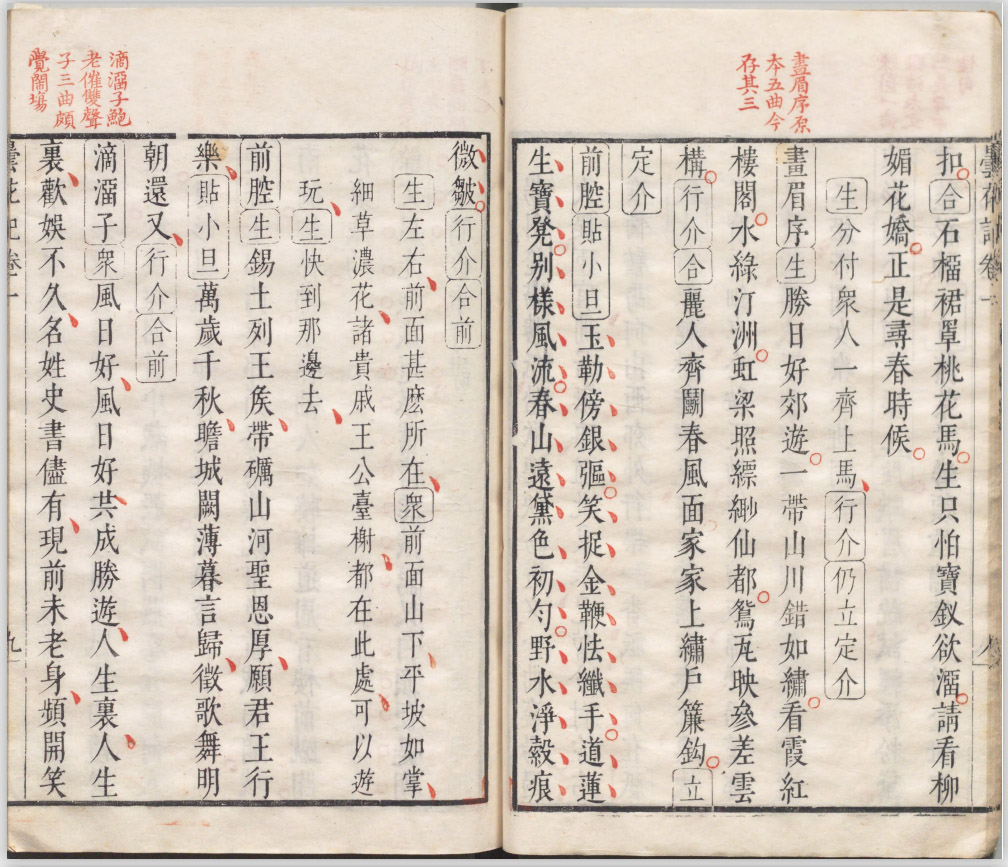 畫眉序原
本五曲今
存其三
曇花記卷一
扣合石榴裙單桃花馬生只怕寶釵欲溜請看柳
媚花嬌正是尋春時候
生分付衆人一齊上馬行介仍立定介
畫眉序生勝日好郊遊一帶山川錯如繡看霞紅
樓閣水綠汀洲虹梁照縹緲仙都鴛瓦映參差雲
構行介合麗人齊鬭春風面家家上繡戶簾鈎立
定介
前腔貼小旦玉勒傍銀彄笑捉金鞭怯纖手道蓮
生寶凳别樣風流春山遠黛色初勻野水淨縠痕
滴溜子鮑
老催雙聲
子三曲頗
覺鬧場
微皺行介合前
生左右前面甚麽所在衆前面山下平坡如掌
細草濃花諸貴戚王公臺榭都在此處可以遊
玩生快到那邊去
前腔生錫土列王矦帶礪山河聖恩厚願君王行
樂貼小旦萬歲千秋瞻城闕薄暮言歸徵歌舞明
朝還又行介合前
滴溜子衆風日好風日好共成勝遊人生裏人生
裏歡娛不久名姓史書儘有現前未老身頻開笑
曇花記卷一
九